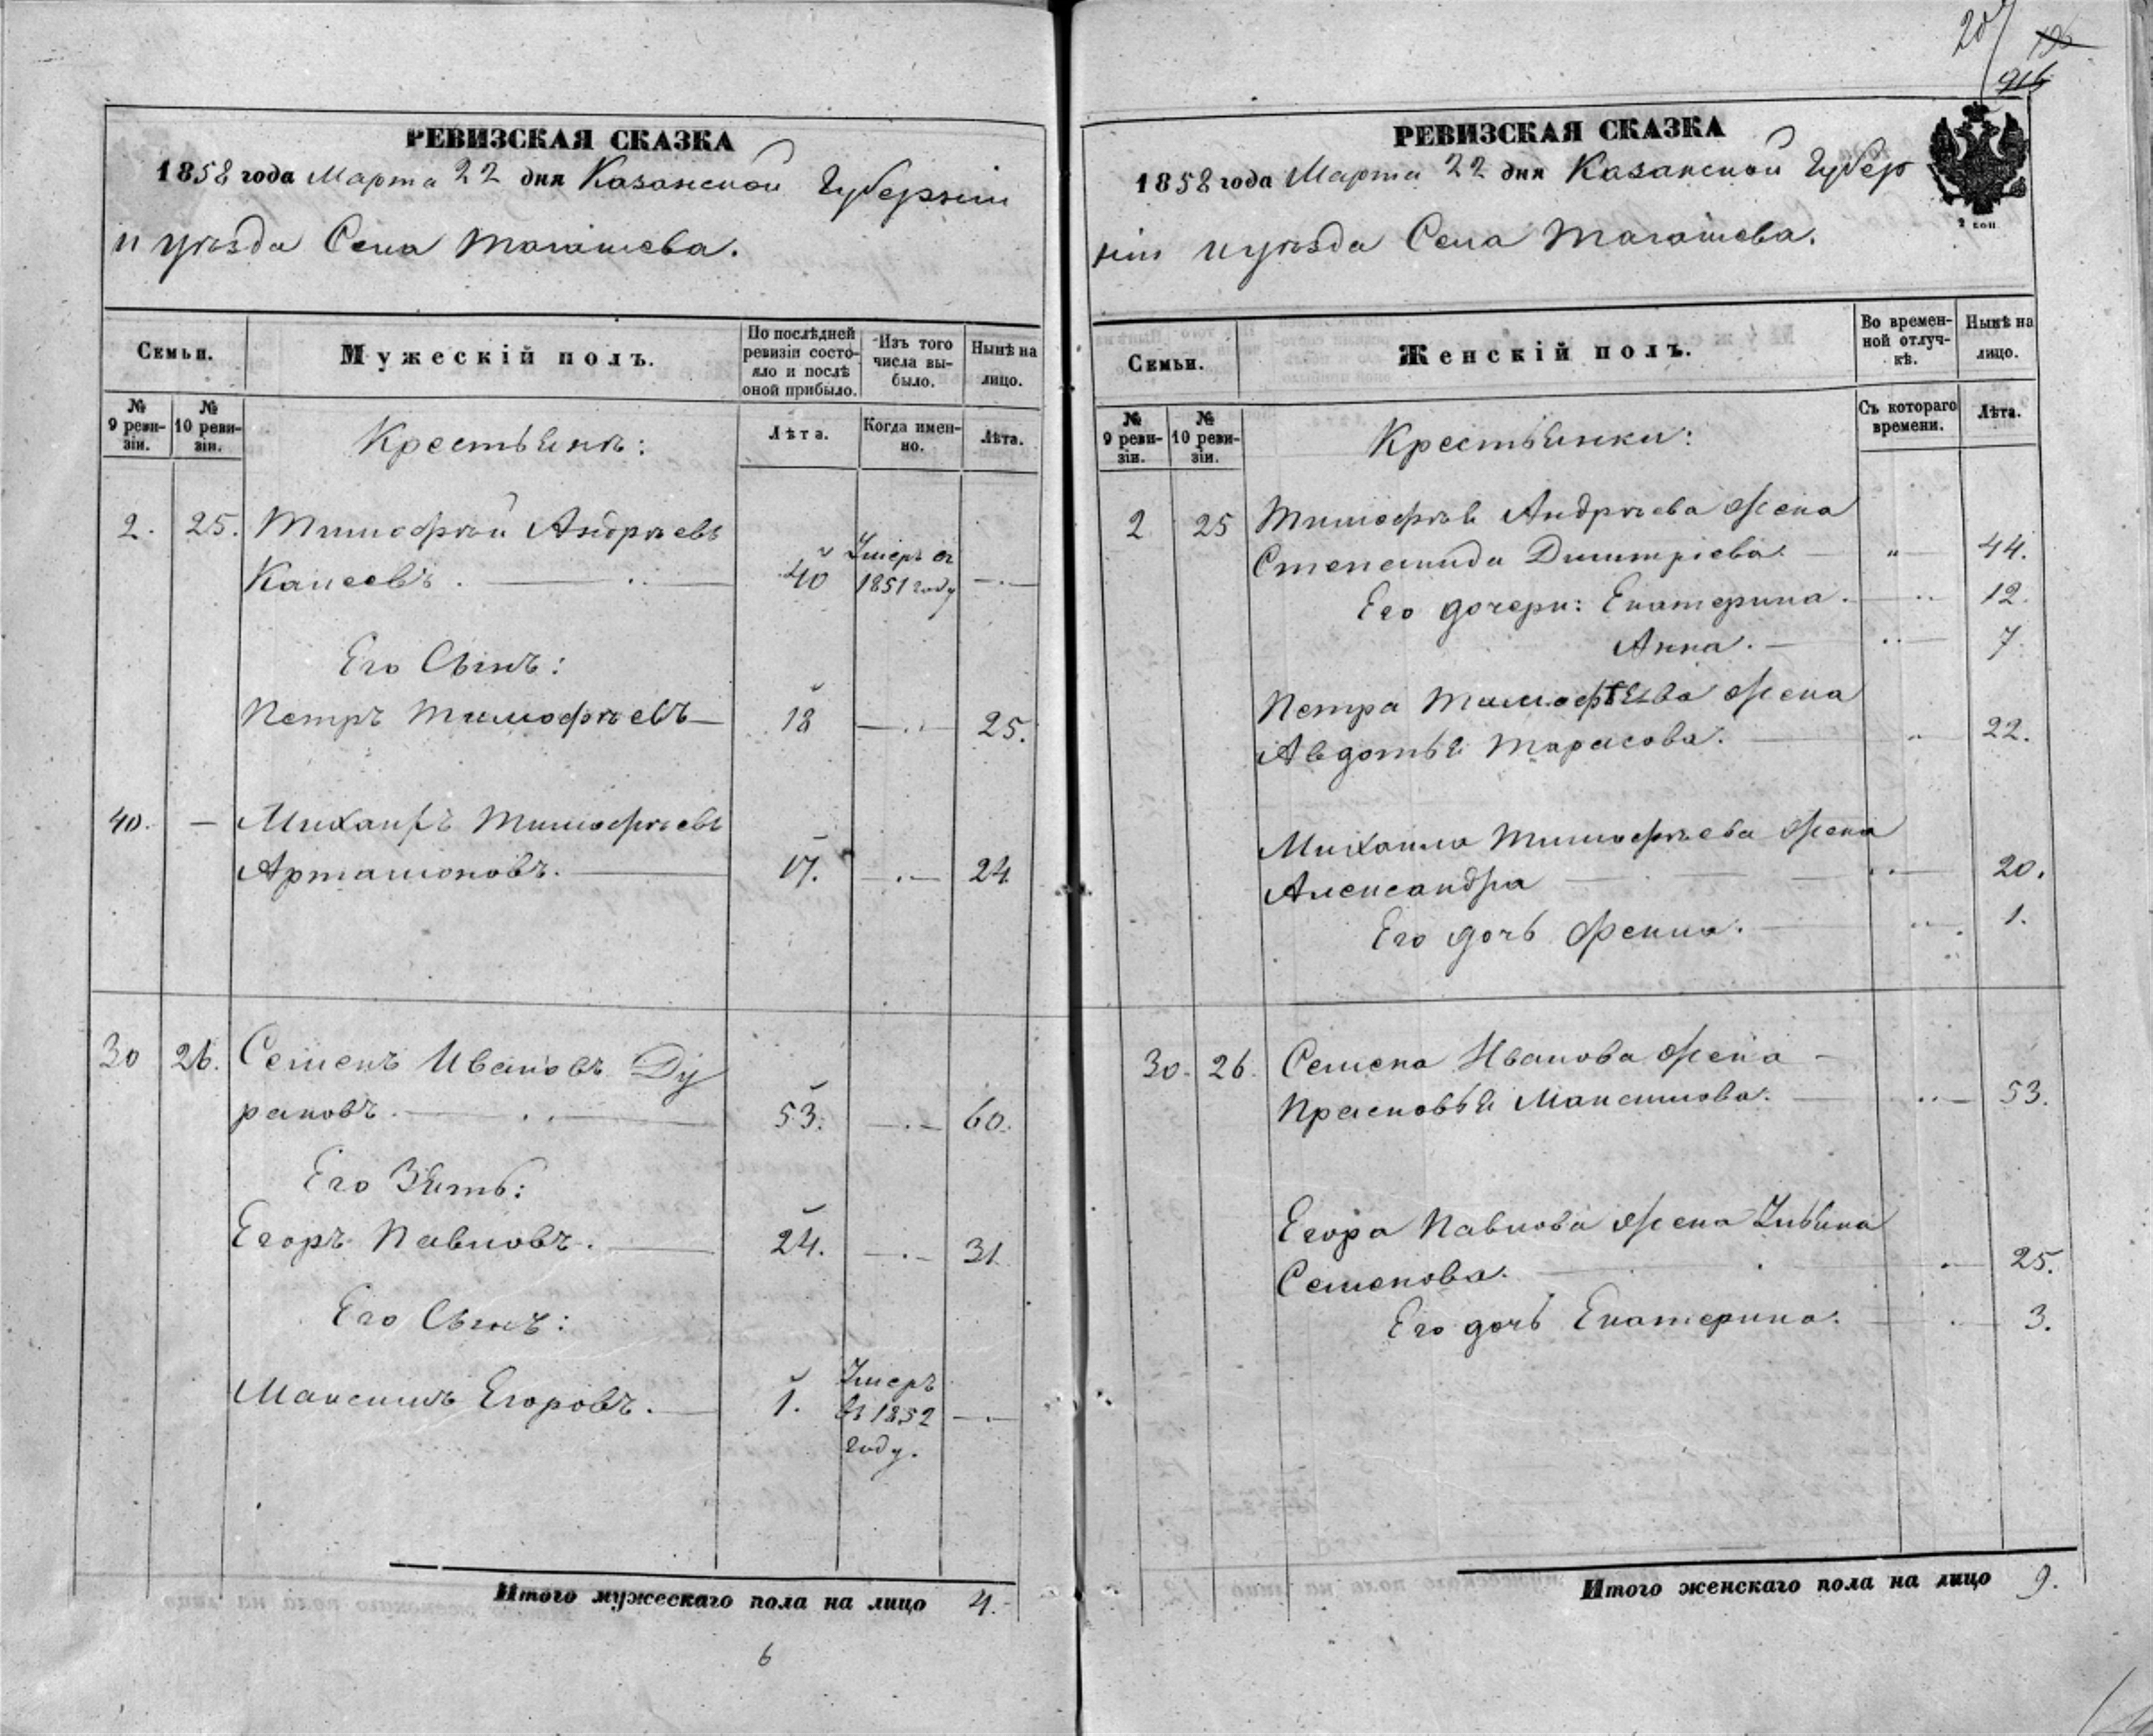 РЕВИЗСКАЯ СКАЗКА
1858 года Марта 22 дня Казанской Губерніи
и уѣзда Села Тагашева.
Семьи.
Мужескій полъ.
По послѣдней ревизіи состояло и послѣ оной прибыло.
Изъ того числа выбыло.
Нынѣ на лицо.
№ 9 ревизіи.
№ 10 ревизіи.
Крестьянъ:
Лѣта.
Когда именно.
Лѣта.
2. 25. Тимофѣй Андрѣевъ
40 Умеръ въ 1851 году
Его Сынъ:
Петръ Тимофѣевъ 18 25.
40. Михаилъ Тимофѣевъ
Артамоновъ. 17. 24
30 26. Семенъ Ивановъ Ду
раковъ. 53. 60.
Его Зять:
Егоръ Павловъ. 24. 31
Его Сынъ:
Максимъ Егоровъ. 1. Умеръ въ 1852 году.
Итого мужескаго пола на лицо 4.
6
207
РЕВИЗСКАЯ СКАЗКА
2 коп
1858 года Марта 22 дня Казанской Губер
ніи и уѣзда Села Тагашева.
Семьи.
Женскій полъ.
Во временной отлучкѣ.
Нынѣ на лицо.
№ 9 ревизіи.
№ 10 ревизіи.
Крестьянки:
Съ котораго времени.
Лѣта.
2 25 Тимофѣя Андрѣева жена
Степанида Дмитріева. " 44.
Его дочери: Екатерина. 12.
Анна. 7.
Петра Тимофѣева жена
Авдотья Тарасова. 22.
Михаила Тимофѣева жена
Александра 20.
Его дочь Фекла. 1.
30. 26. Семена Иванова жена
Прасковья Максимова. 53.
Егора Павлова жена Ульяна
Семенова. 25.
Его дочь Екатерина. 3.
Итого женскаго пола на лицо 9.